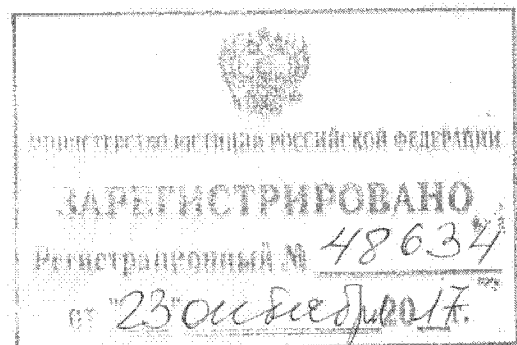 МИНИСТЕРСТВО ЮСТИЦИИ РОССИЙСКОЙ ФЕДЕРАЦИИ
ЗАРЕГИСТРИРОВАНО
Регистрационный № 48634
от "23" октября 2017г.